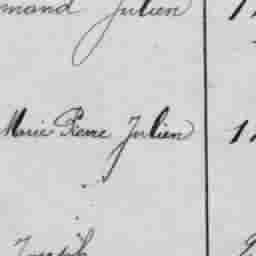 mand Julien
Marie Pierre Julien
Joseph